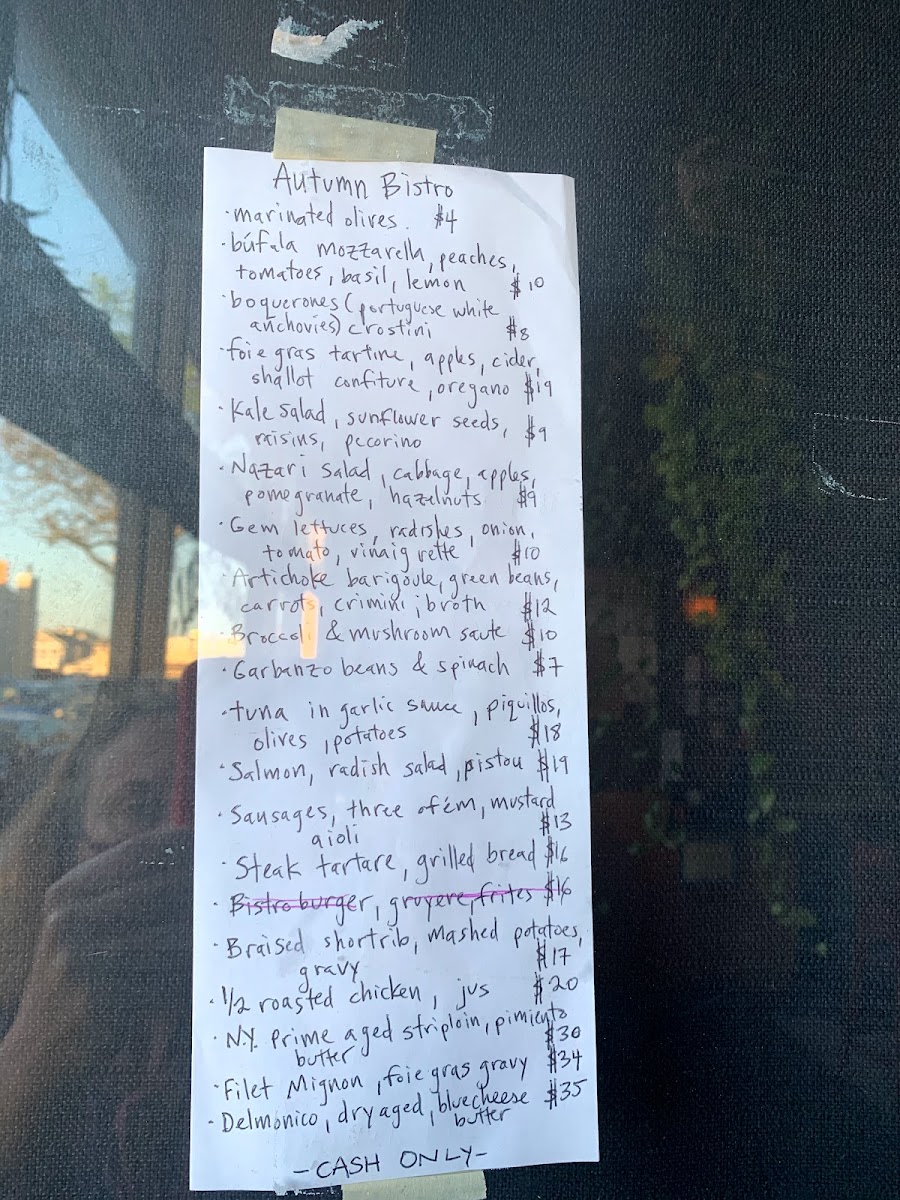 Autumn Bistro
·marinated olives. $4
·búfala mozzarella, peaches,
tomatoes, basil, lemon $10
·boquerones (portuguese white
anchovies) crostini $8
·foie gras tartine, apples, cider,
shallot confiture, oregano $19
·Kale salad, sunflower seeds,
raisins, pecorino $9
·Nazari salad, cabbage, apples,
pomegranate, hazelnuts $9
·Gem lettuces, radishes, onion,
tomato, vinaigrette $10
·Artichoke barigoule, green beans,
carrots, crimini; broth $12
·Broccoli & mushroom saute $10
·Garbanzo beans & spinach $7
·tuna in garlic sauce, piquillos,
olives, potatoes $18
·Salmon, radish salad, pistou $19
·Sausages, three of'em, mustard
aioli $13
·Steak tartare, grilled bread $16
·Bistro burger, gruyere, frites $16
·Braised shortrib, mashed potatoes,
gravy $17
·1/2 roasted chicken, jus $20
·N.Y. Prime aged striploin, pimiento
butter $30
·Filet Mignon, foie gras gravy $34
·Delmonico, dry aged, bluecheese $35
butter
-CASH ONLY-